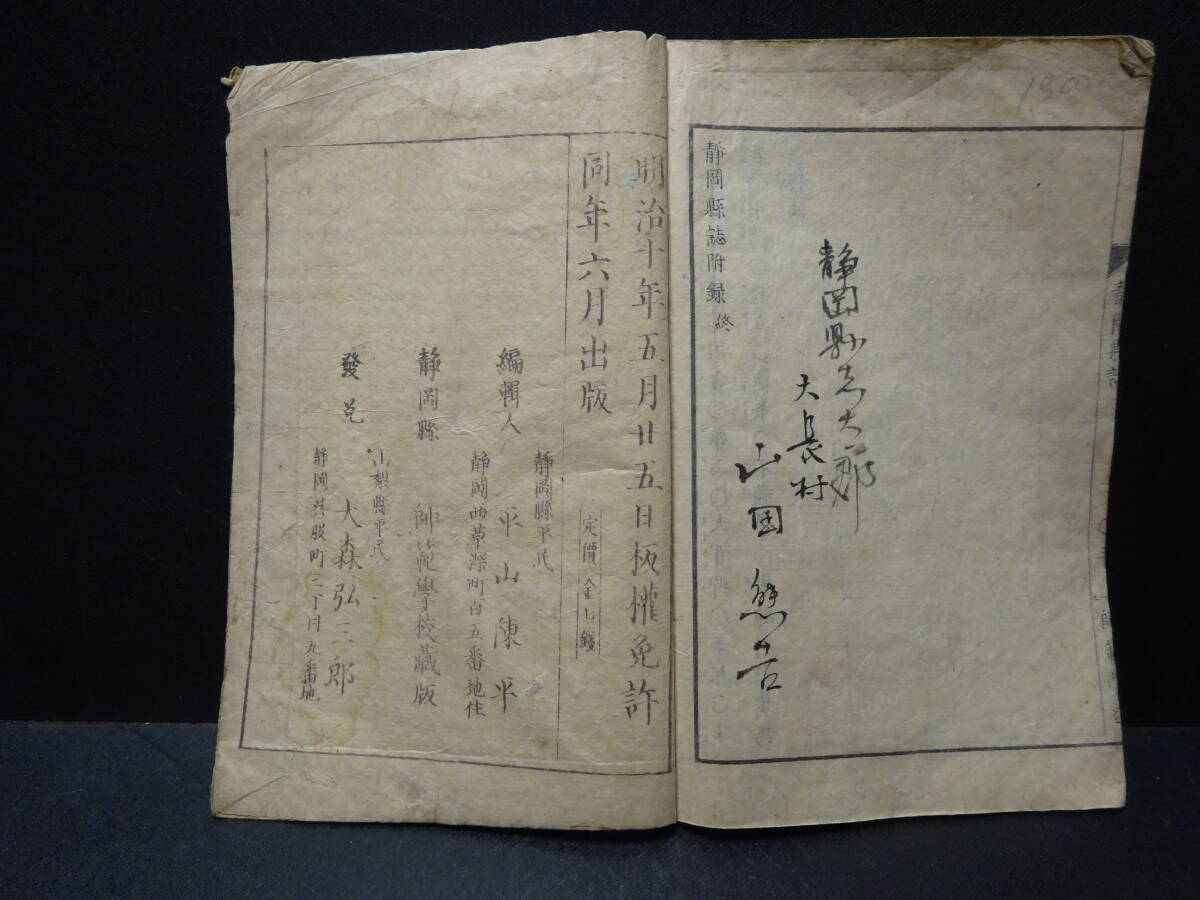 静岡縣志太郡
大長村
山田熊吉
靜岡縣誌附錄終
明治十年五月廿五日板權免許
同年六月出版
定價金七錢
靜岡縣平民
編輯人 平山陳平
靜岡西草深町百五番地住
靜岡縣 師範學校藏版
山梨縣平民
發兌 大森弘三郎
靜岡呉服町三丁目九番地